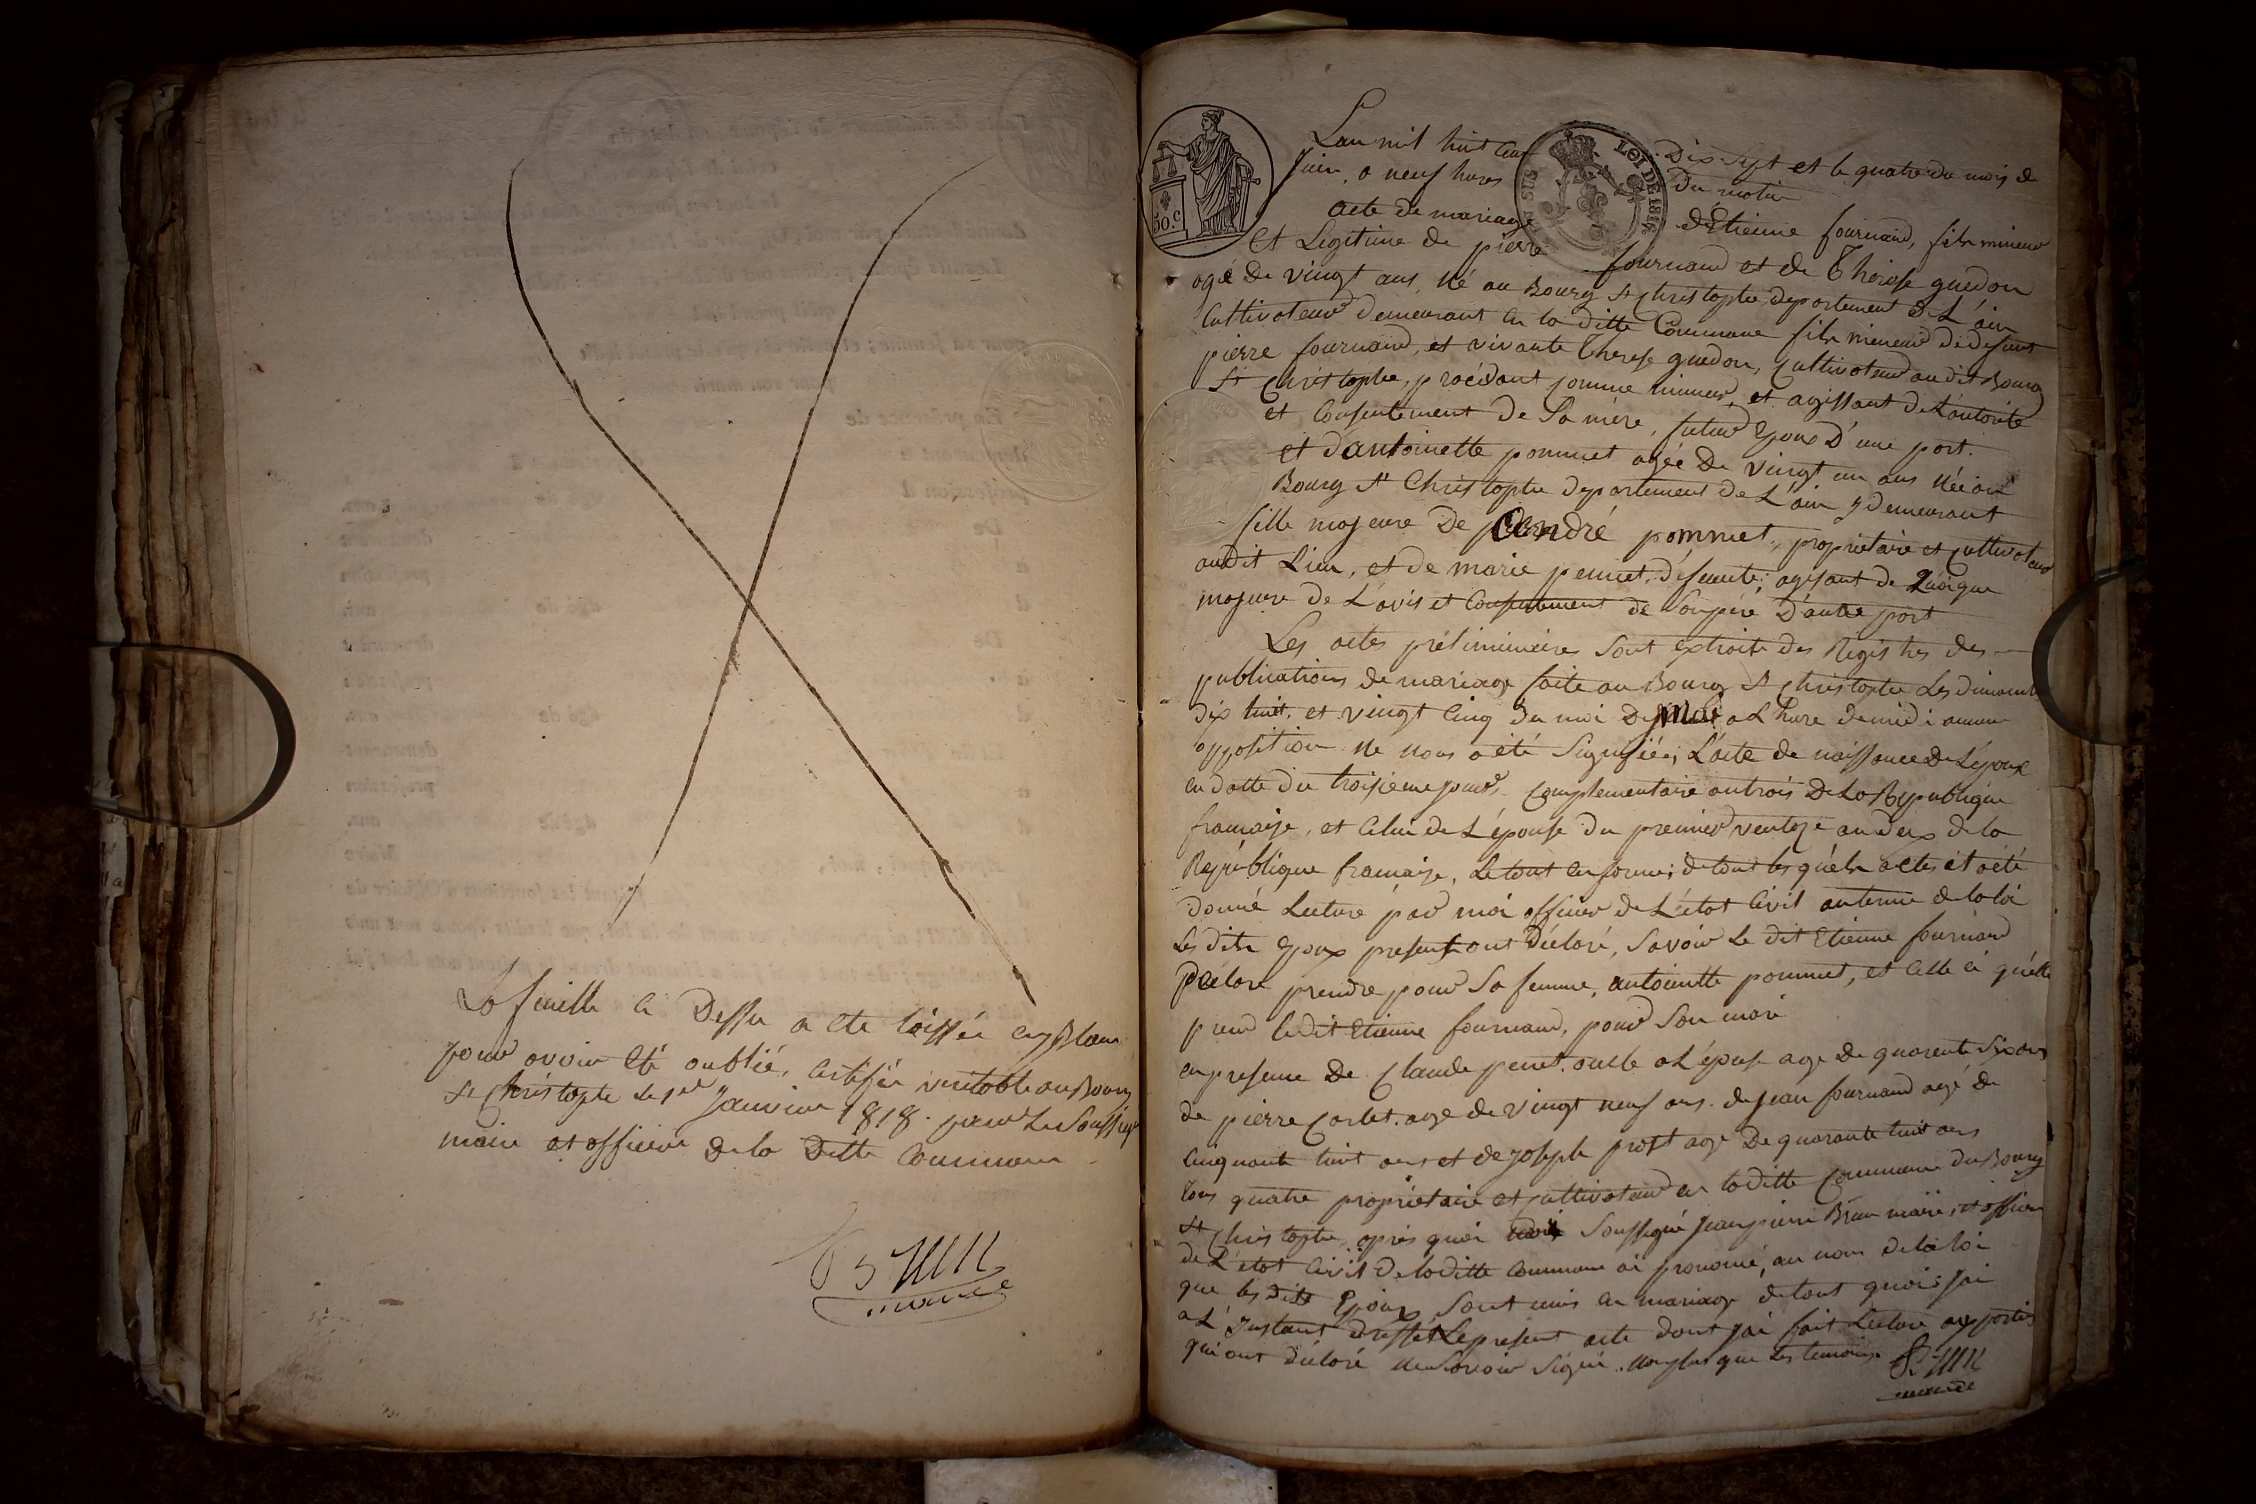 La feuille ci Dessu a été laissée en Blanc
pour avoir été oublié, Certifiée veritable au Bourg
St Christople le 1er Janvier 1818. par le Soussigné
maire et officier de la Ditte Commune
Brun
maire
50.c
LOI DE 1816
Lan mil huit Cent Dix Sept et le quatre du mois de
Juin, a neuf hures du matin
acte de mariage d'Etienne fournand, fils mineur
Et Legitime de pierre fournand et de Therese guedon
agé de vingt ans, Né au Bourg St Christophe, departement de L'ain
Cultivateur demeurant en la ditte Commune fils mineur de defunt
pierre fournand, et vivante Therese guedon, Cultivateur audit Bourg
St Christophe, procédant comme mineur, et agissant de L'autorité
et Consentement de Sa mère, futur Epoux D'une part.
et d'antoinette pommet agée De vingt un ans Née au
Bourg St Christophe departement de L'ain y demeurant
fille majeure De andré pommet, proprietaire et Cultivateur
audit Lieu, et de marie penet, défunte; agisant de Quoique
majeure de L'avis et Consentement de Son père D'autre part
Les actes préliminaires Sont Extraits des Registres des
publications de mariage faite au Bourg St Christophe Les dimanche
dix huit, et vingt Cinq du moi De Mai a L'hure de midi aucune
opposition ne nous a été Signifiée; L'acte de naissance de L'époux
en datte du troisieme jour Complementaire an trois De La Republique
francaise, et Celui de L'épouse du premier ventoze an deux de la
République francaise, Le tout en forme; de tout les quels actes il a été
donné Lecture par moi officier de L'état Civil au terme de la loi
Les dits Epoux present ont Déclaré, Savoir Le dit Etienne fournand
Déclare prendre pour Sa femme, antoinette pommet, et Celle ci qu'elle
prend le dit Etienne fournand, pour Son mari
en presence De Claude penet, oncle a L'épouse age de quarente Six ans
de pierre Carlet, age de vingt neuf ans. de Jean fournand agé de
Cinquante huit ans et de joseph prost age De quarante huit ans
tous quatre propriétaire et Cultivateur en la ditte Commune du Bourg
St Christophe, après quoi moi Soussigné Jean pierre Brun maire, et officier
de L'état Civil De laditte Commune ai prononcé, au nom de la loi
que les dits Epoux Sont unis en mariage, de tout quoi; J'ai
a L'Instant dressé Le present acte dont J'ai fait Lecture aux parties
qui ont déclaré ne Savoir Signé. Non plus que les temoins.
Brun
maire